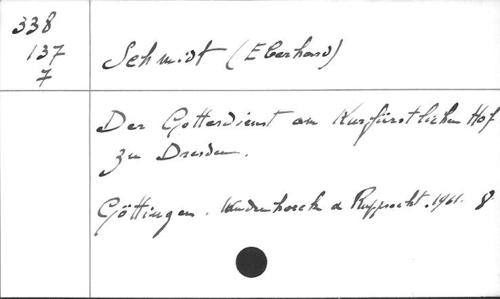 338
137
7
Schmidt (Eberhard)
Der Gottesdienst am Kurfürstlichen Hof
zu Dresden.
Göttingen. Vandenhoeck & Ruprecht. 1961. 8